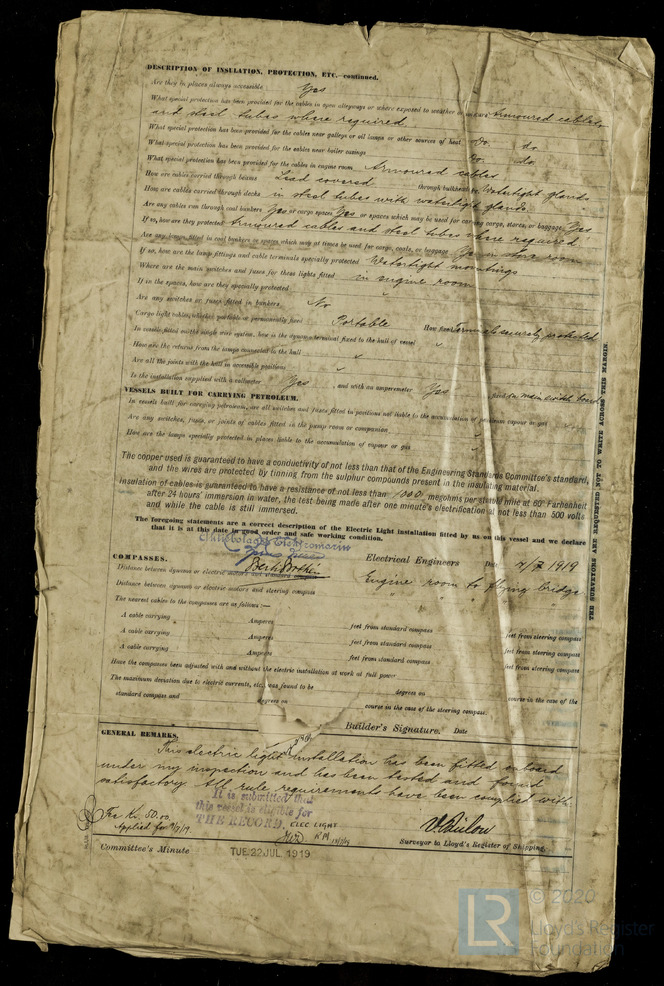 DESCRIPTION OF INSULATION, PROTECTION, ETC.—continued.
Are they in places always accessible Yes
What special protection has been provided for the cables in open alleyways or where exposed to weather or moisture Armoured cables
and steel tubes where required
What special protection has been provided for the cables near galleys or oil lamps or other sources of heat do. do.
What special protection has been provided for the cables near boiler casings do. do.
What special protection has been provided for the cables in engine room Armoured cables
How are cables carried through beams Lead covered through bulkheads, Watertight glands
How are cables carried through decks in steel tubes with watertight glands
Are any cables run through coal bunkers Yes or cargo spaces Yes or spaces which may be used for carrying cargo, stores, or baggage Yes
If so, how are they protected Armoured cables and steel tubes where required
Are any lamps fitted in coal bunkers or spaces which may at times be used for cargo, coals, or baggage Yes in store room
If so, how are the lamp fittings and cable terminals specially protected Watertight mountings
Where are the main switches and fuses for these lights fitted in engine room
If in the spaces, how are they specially protected
Are any switches or fuses fitted in bunkers No
Cargo light cables, whether portable or permanently fixed Portable How fixed Terminals securely protected
In vessels fitted on the single wire system, how is the dynamo terminal fixed to the hull of vessel
How are the returns from the lamps connected to the hull
Are all the joints with the hull in accessible positions
Is the installation supplied with a voltmeter Yes, and with an amperemeter Yes, fixed on main switch board
VESSELS BUILT FOR CARRYING PETROLEUM.
In vessels built for carrying petroleum, are all switches and fuses fitted in positions not liable to the accumulation of petroleum vapour or gas
Are any switches, fuses, or joints of cables fitted in the pump room or companion
How are the lamps specially protected in places liable to the accumulation of vapour or gas
The copper used is guaranteed to have a conductivity of not less than that of the Engineering Standards Committee's standard,
and the wires are protected by tinning from the sulphur compounds present in the insulating material.
Insulation of cables is guaranteed to have a resistance of not less than 1000 megohms per statute mile at 60° Farhenheit
after 24 hours' immersion in water, the test being made after one minute's electrification at not less than 500 volts
and while the cable is still immersed.
The foregoing statements are a correct description of the Electric Light installation fitted by us on this vessel and we declare
that it is at this date in good order and safe working condition.
Electrical Engineers Date 7/7 1919
COMPASSES.
Distance between dynamo or electric motors and standard compass Engine room to flying bridge
Distance between dynamo or electric motors and steering compass " " " "
The nearest cables to the compasses are as follows:—
A cable carrying Amperes feet from standard compass feet from steering compass
A cable carrying Amperes feet from standard compass feet from steering compass
A cable carrying Amperes feet from standard compass feet from steering compass
Have the compasses been adjusted with and without the electric installation at work at full power
The maximum deviation due to electric currents, etc., was found to be degrees on course in the case of the
standard compass and degrees on course in the case of the steering compass.
Builder's Signature. Date
GENERAL REMARKS.
This electric light installation has been fitted onboard
under my inspection and has been tested and found
satisfactory. All rule requirements have been complied with.
It is submitted that
this vessel is eligible for
THE RECORD. ELEC LIGHT
Fee Kr. 50.00
Applied for 9/7/19.
V. Bülow
Surveyor to Lloyd's Register of Shipping.
Committee's Minute TUE. 22 JUL 1919
THE SURVEYORS ARE REQUESTED NOT TO WRITE ACROSS THIS MARGIN.
LR
© 2020
Lloyd's Register
Foundation